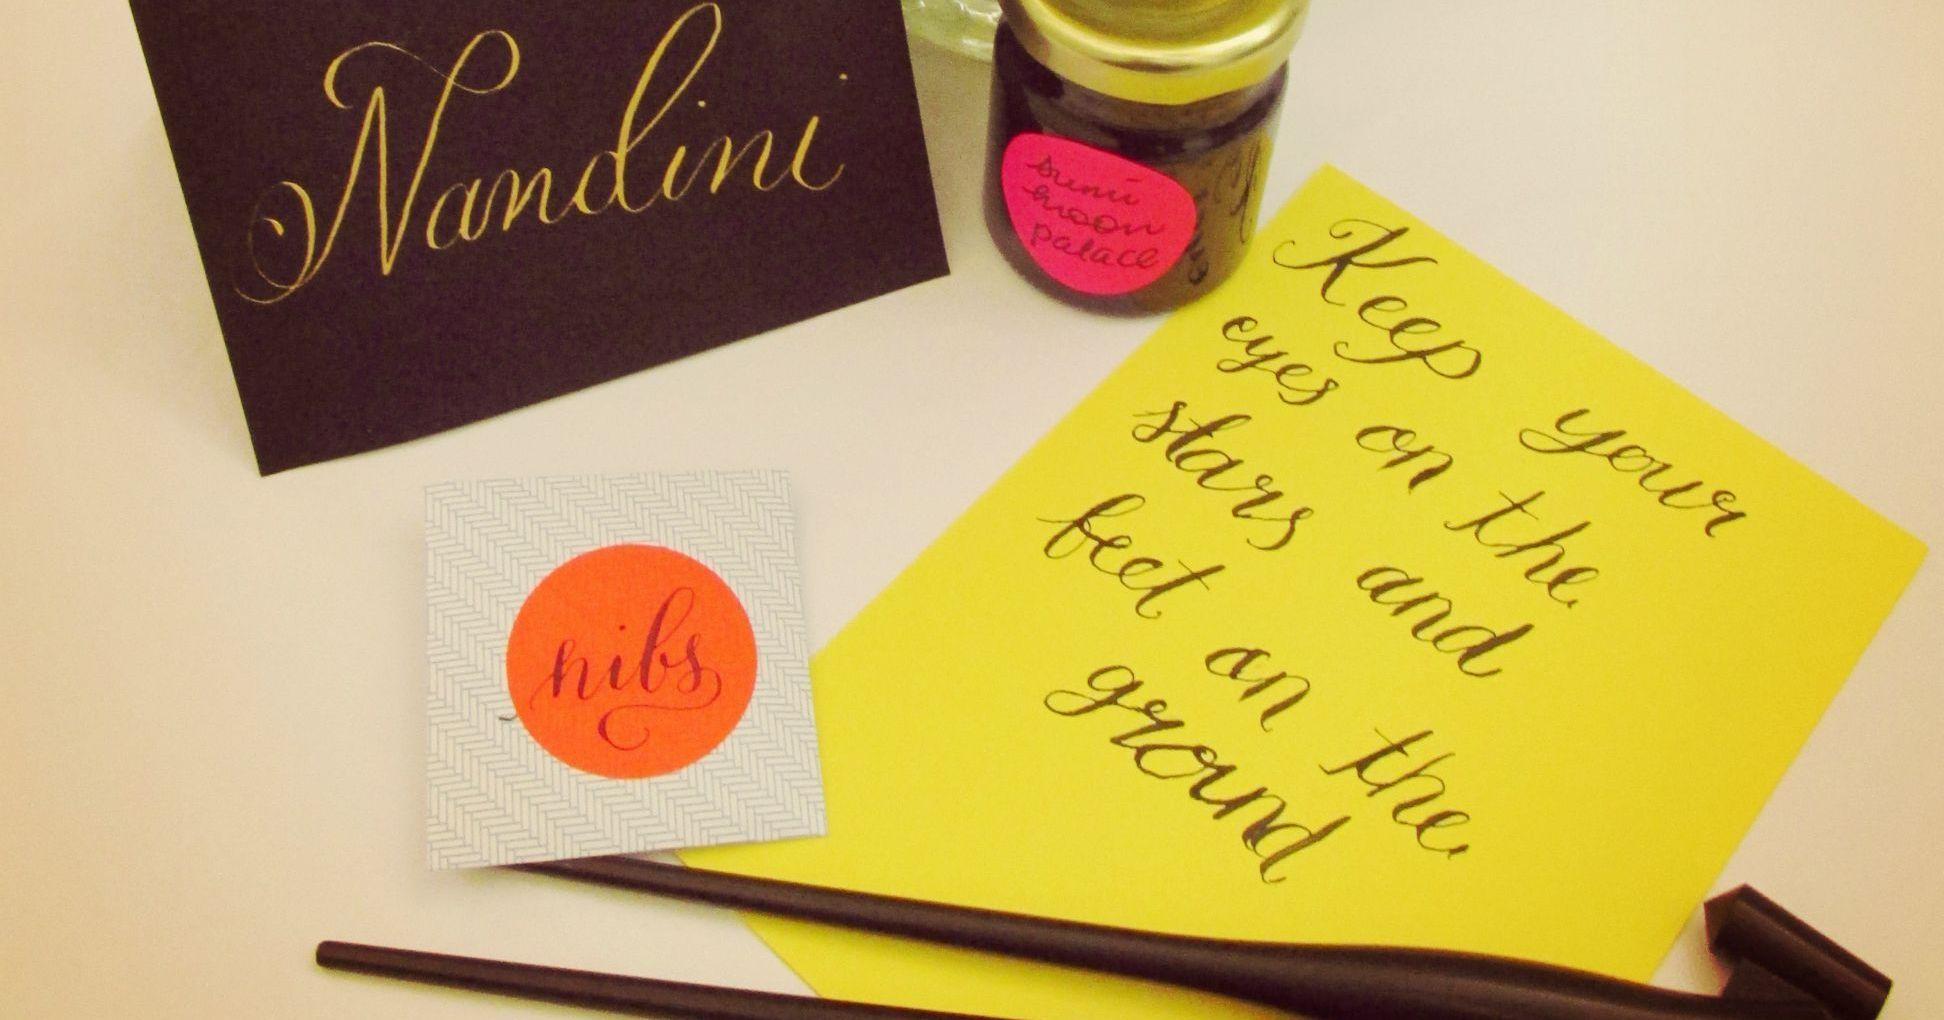 Nandini
sumi
moon
palace
Keep your
eyes on the
stars and
feet on the
ground
nibs